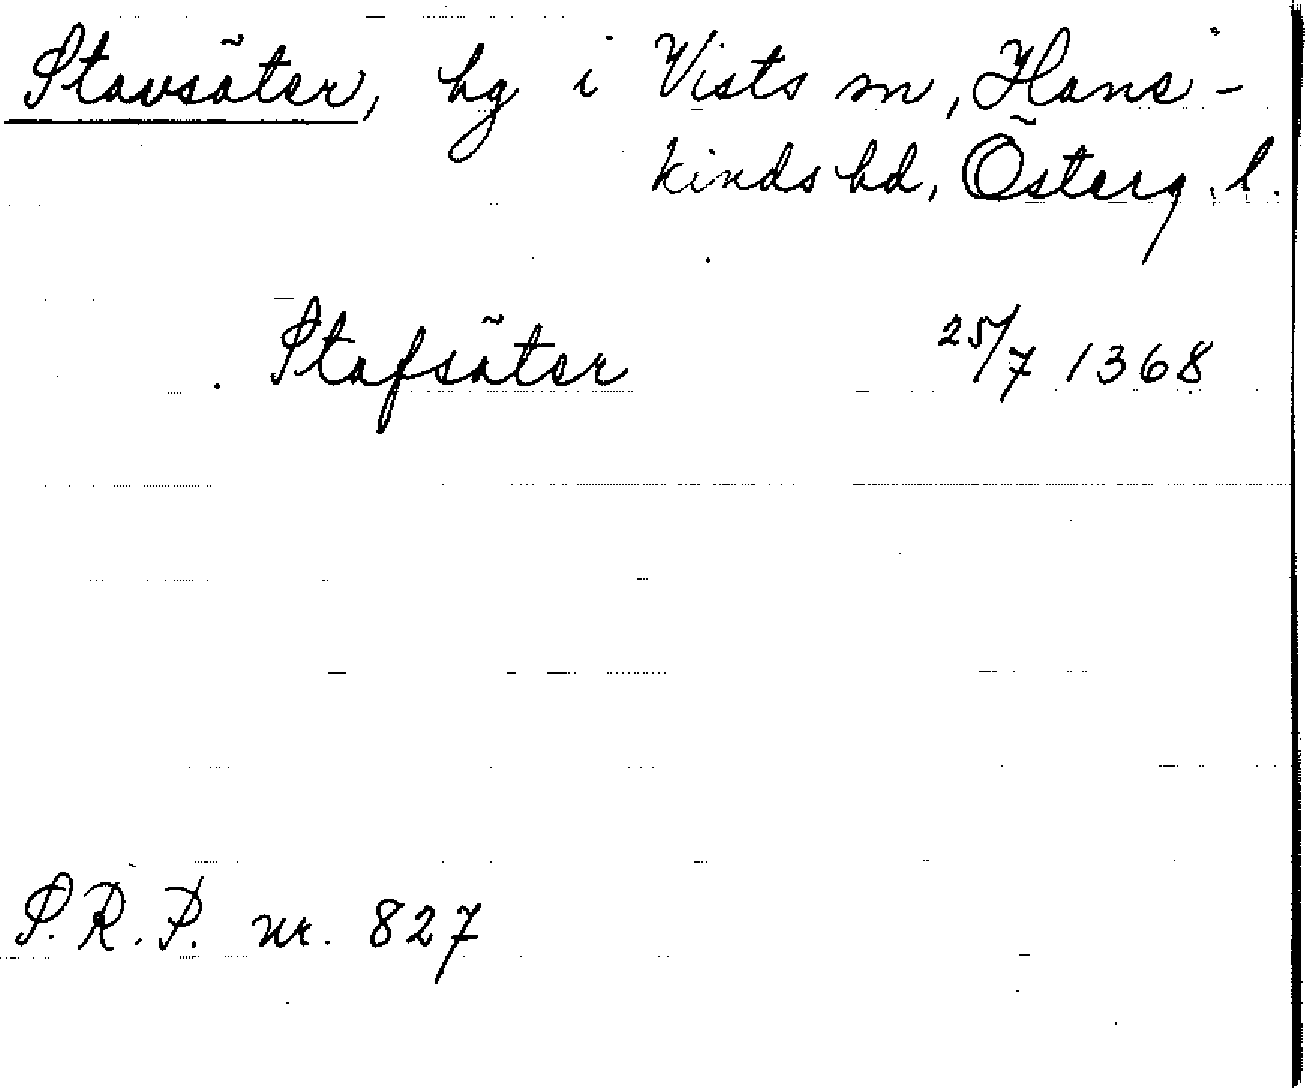 Stavsäter, hg i Vists sn, Hane-
kinds hd, Österg. l.
Stafsäter 25/7 1368
S.R.P. nr. 827